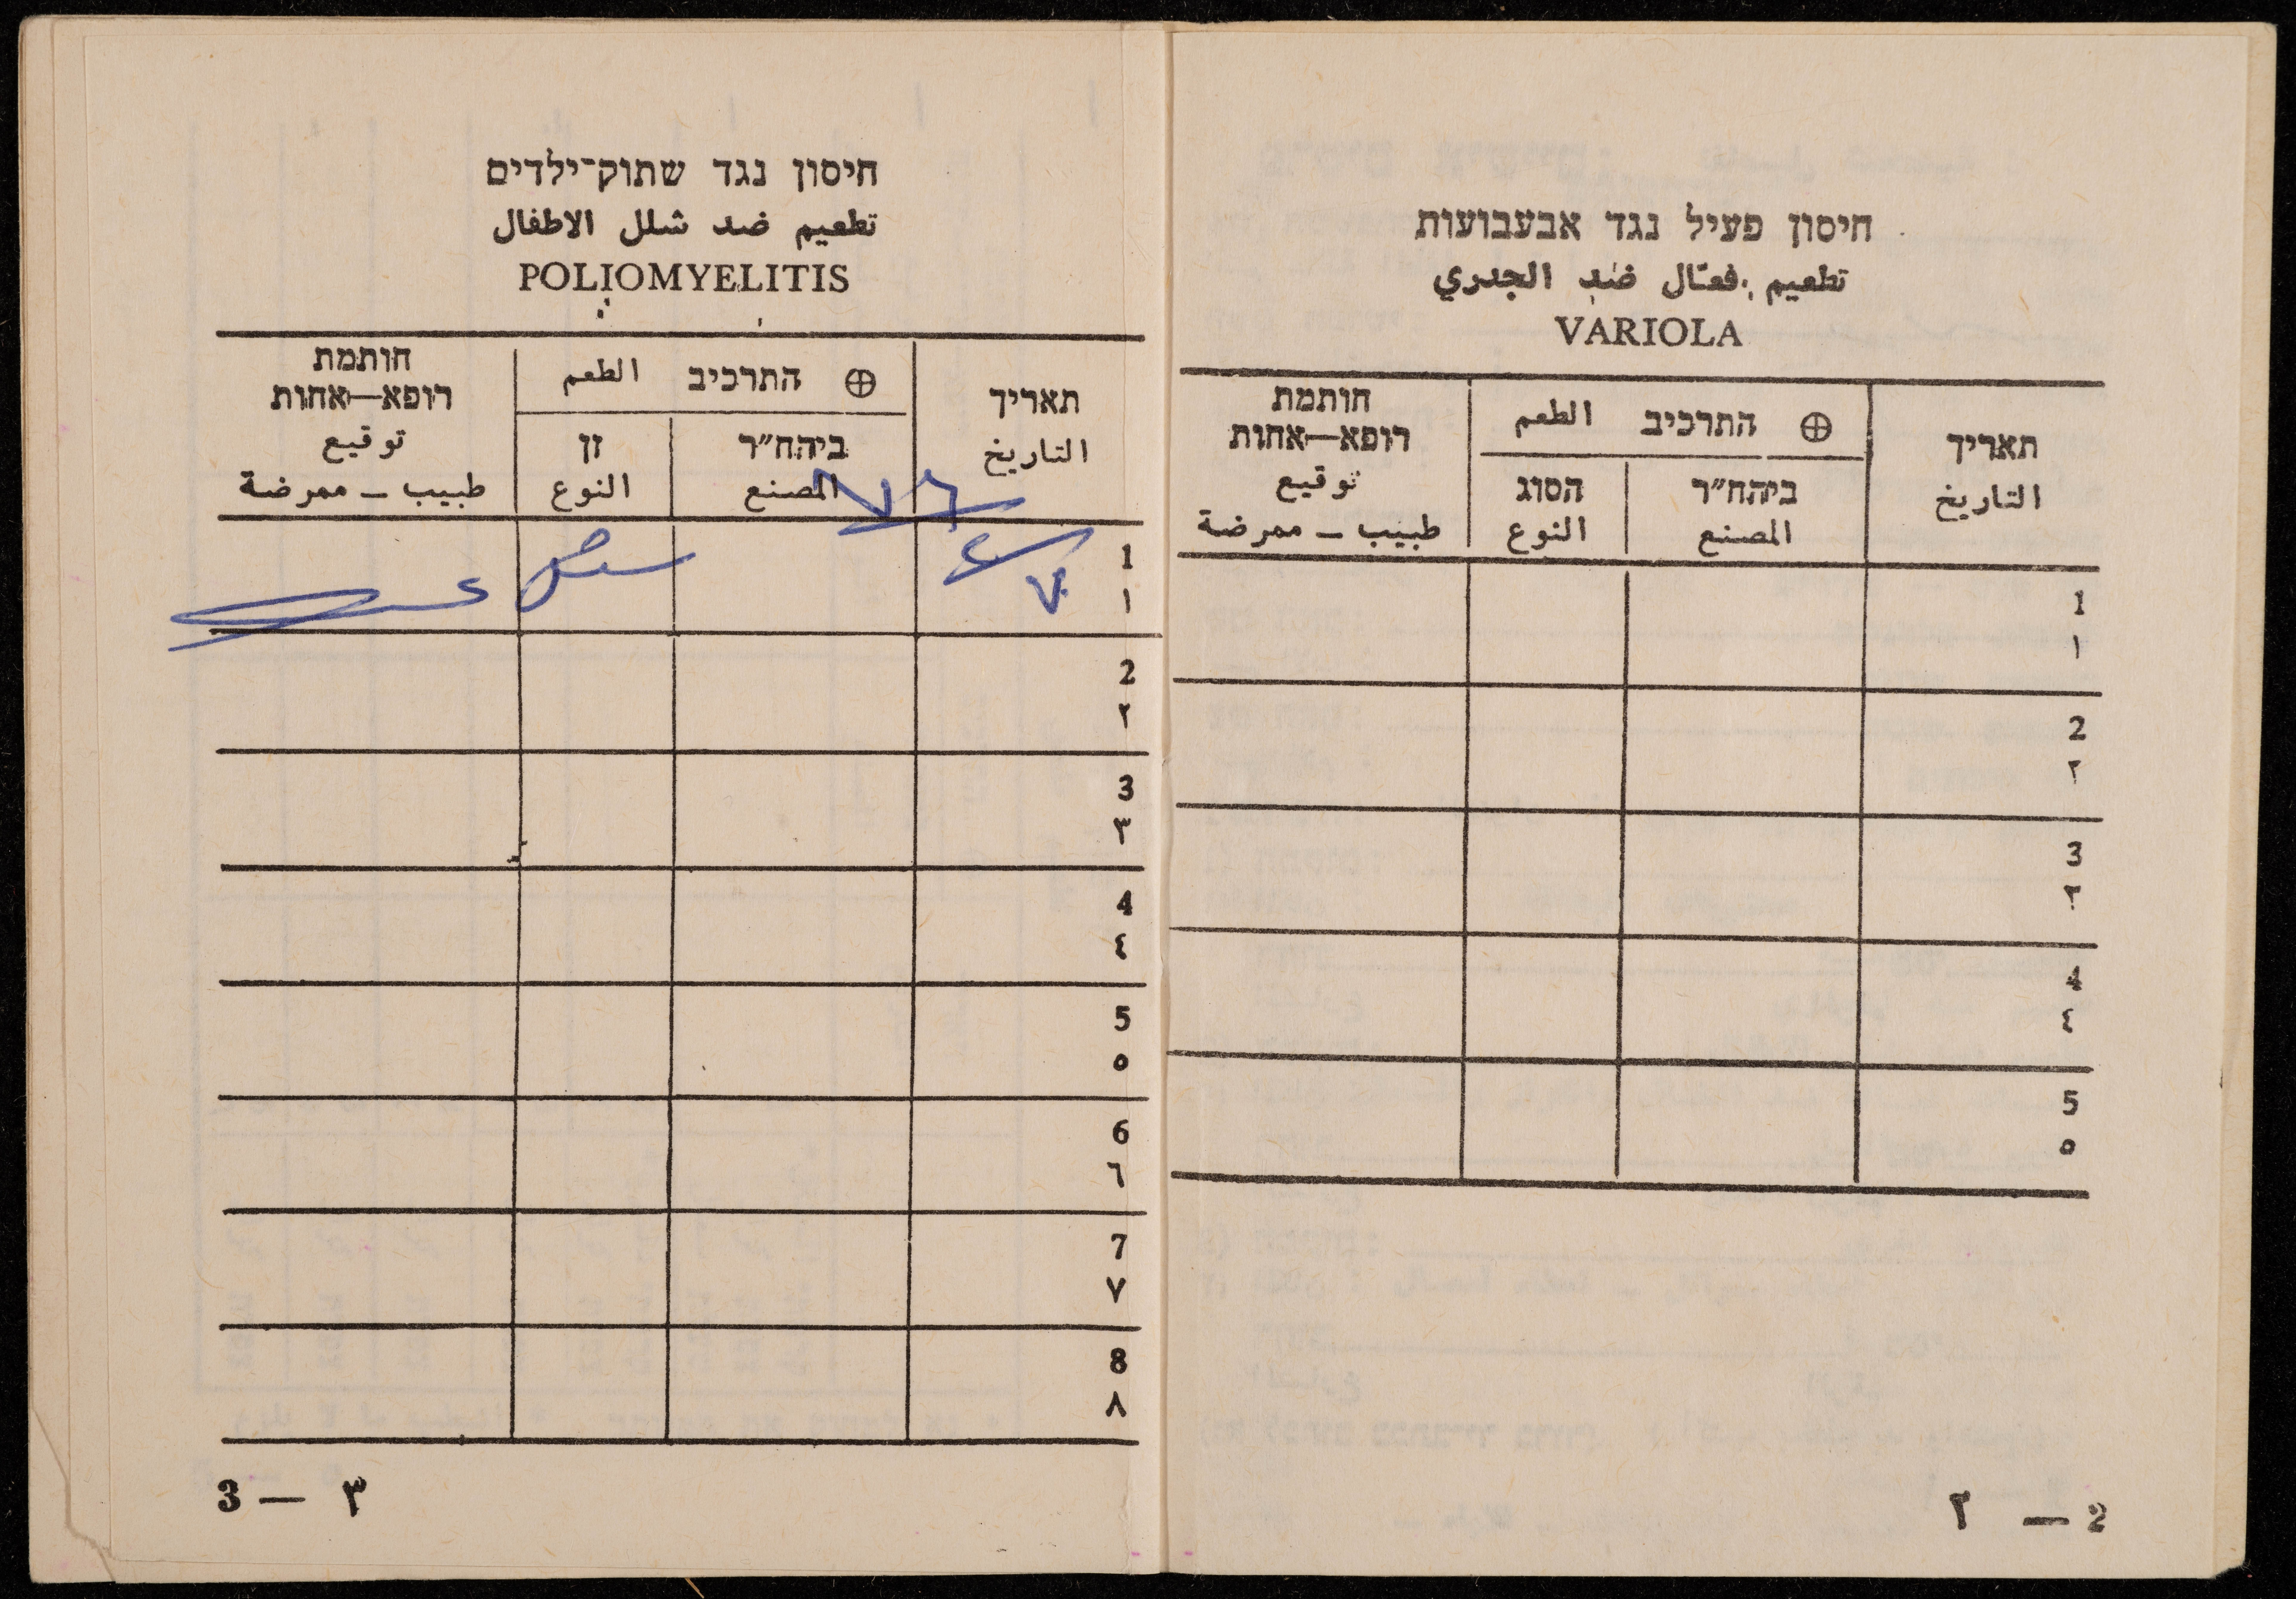 חיסון פעיל נגד אבעבועות
تطعيم فعّال ضد الجدري
VARIOLA
תאריך
التاريخ
⊕ התרכיב الطعم
ביהח״ר
المصنع
הסוג
النوع
חותמת
רופא—אחות
توقيع
طبيب – ممرضة
1
١
2
٢
3
٣
4
٤
5
٥
٢ — 2
חיסון נגד שתוק־ילדים
تطعيم ضد شلل الاطفال
POLIOMYELITIS
תאריך
التاريخ
⊕ התרכיב الطعم
ביהח״ר
المصنع
זן
النوع
חותמת
רופא—אחות
توقيع
طبيب – ممرضة
1
١
2
٢
3
٣
4
٤
5
٥
6
٦
7
٧
8
٨
3 — ٣